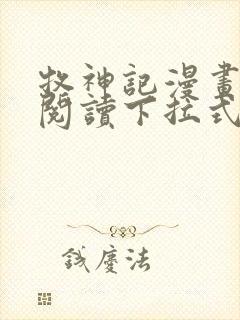 牧神記漫畫
閱讀下拉式
鐵慶法